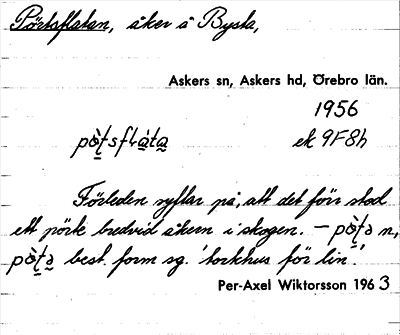 Pörtsflatan, åker å Bysta,
Askers sn, Askers hd, Örebro län.
1956
ek 9F8h
Förleden syftar på, att det förr stod
ett pörte bredvid åkern i skogen. –
best. form sg. 'torkhus för lin'.
Per-Axel Wiktorsson 1963